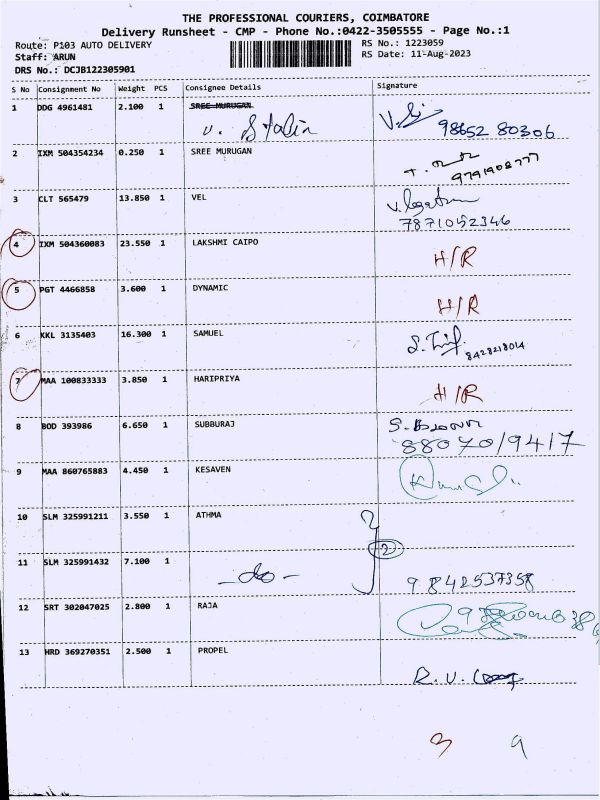 THE PROFESSIONAL COURIERS, COIMBATORE
Delivery Runsheet - CMP - Phone No.:0422-3505555 - Page No.:1
Route: P103 AUTO DELIVERY RS No.: 1223059
Staff: ARUN RS Date: 11-Aug-2023
DRS No.: DCJB122305901
S No Consignment No Weight PCS Consignee Details Signature
1 DDG 4961481 2.100 1 SREE MURUGAN
V. Stalin 98652 80306
2 IXM 504354234 0.250 1 SREE MURUGAN
9791908777
3 CLT 565479 13.850 1 VEL
7871052346
4 IXM 504360083 23.550 1 LAKSHMI CAIPO H/R
5 PGT 4466858 3.600 1 DYNAMIC H/R
6 KKL 3135403 16.300 1 SAMUEL
8428218014
7 MAA 100833333 3.850 1 HARIPRIYA H/R
8 BOD 393986 6.650 1 SUBBURAJ
88070/94/7
9 MAA 860765883 4.450 1 KESAVEN
10 SLM 325991211 3.550 1 ATHMA
2
11 SLM 325991432 7.100 1
-do- 9842537358
12 SRT 302047025 2.800 1 RAJA
13 HRD 369270351 2.500 1 PROPEL
R. U.
3 9